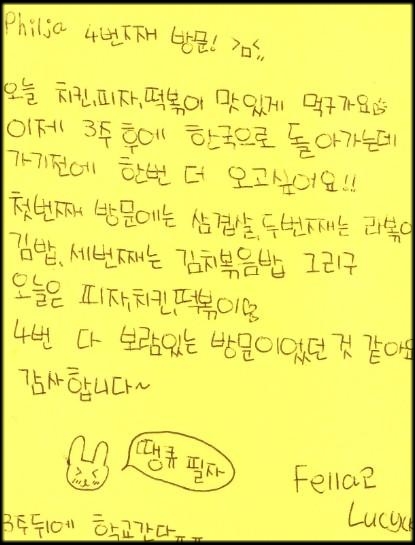 Philja 4번째 방문! >_<
오늘 치킨,피자,떡볶이 맛있게 먹구가요
이제 3주 후에 한국으로 돌아가는데
가기전에 한번 더 오고싶어요!!
첫번째 방문에는 삼겹살,두번째는 라볶이
김밥, 세번째는 김치볶음밥 그리구
오늘은 피자,치킨,떡볶이
4번 다 보람있는 방문이었던 것 같아요
감사합니다~
땡큐 필자
Fella2
3주뒤에 학교간다ㅠㅠ